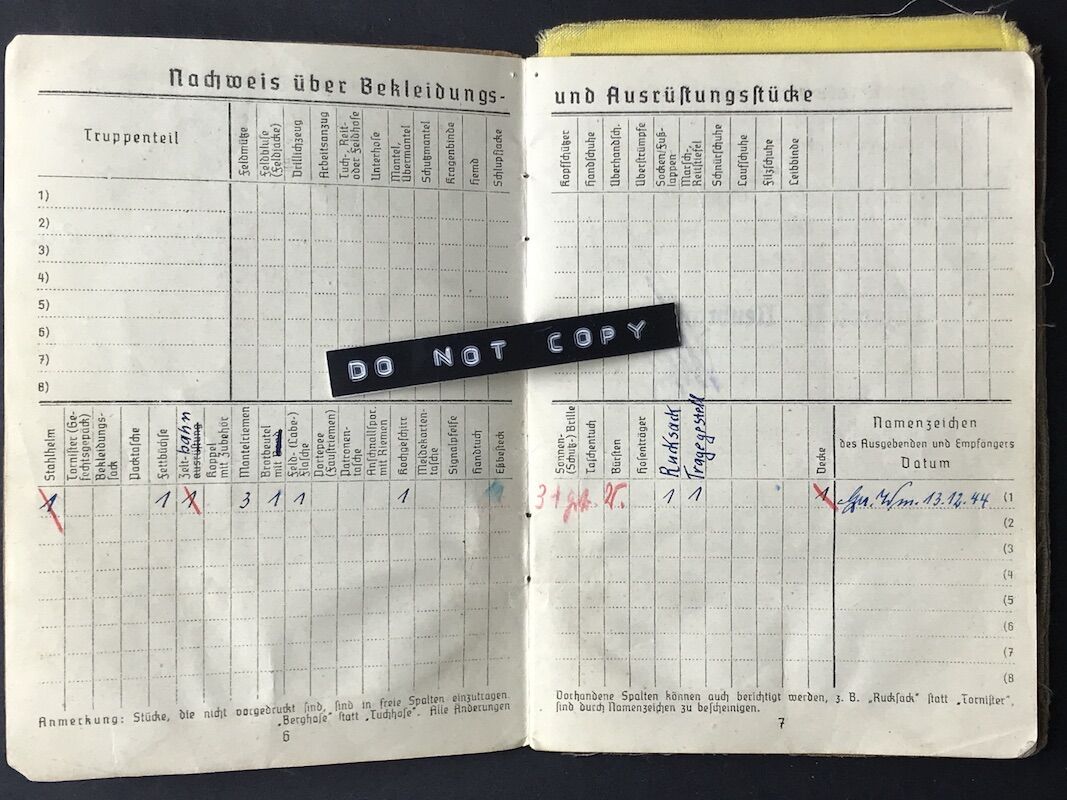 Nachweis über Bekleidungs-
Truppenteil
Feldmütze
Feldbluse (Feldjacke)
Drillichzeug
Arbeitsanzug
Tuch-, Reit- oder Feldhose
Unterhose
Mantel, Übermantel
Schutzmantel
Kragenbinde
Hemd
Schlupfjacke
1)
2)
3)
4)
5)
6)
7)
8)
Stahlhelm
Tornister (Gefechtsgepäck)
Bekleidungssack
Packtasche
Fettbüchse
Zeltbahn ausrüstung
Koppel mit Zubehör
Mantelriemen
Brotbeutel mit
Feld- (Labe-) Flasche
Portepee (Faustriemen)
Patronentasche
Anschnallspor. mit Riemen
Kochgeschirr
Meldekartentasche
Signalpfeife
Handtuch
Eßbesteck
1 1 1 3 1 1 1
Anmerkung: Stücke, die nicht vorgedruckt sind, sind in freie Spalten einzutragen.
„Berghose“ statt „Tuchhose“. Alle Änderungen
6
und Ausrüstungsstücke
Kopfschützer
Handschuhe
Überhandsch.
Überstrümpfe
Socken/Fußlappen
Marsch-, Reitstiefel
Schnürschuhe
Laufschuhe
Filzschuhe
Leibbinde
DO NOT COPY
Sonnen- (Schutz-) Brille
Taschentuch
Bürsten
Hosenträger
Rucksack
Tragegestell
Decke
Namenzeichen
des Ausgebenden und Empfängers
Datum
1 1 1 13.12.44 (1
(2
(3
(4
(5
(6
(7
(8
Vorhandene Spalten können auch berichtigt werden, z. B. „Rucksack“ statt „Tornister“,
sind durch Namenzeichen zu bescheinigen.
7